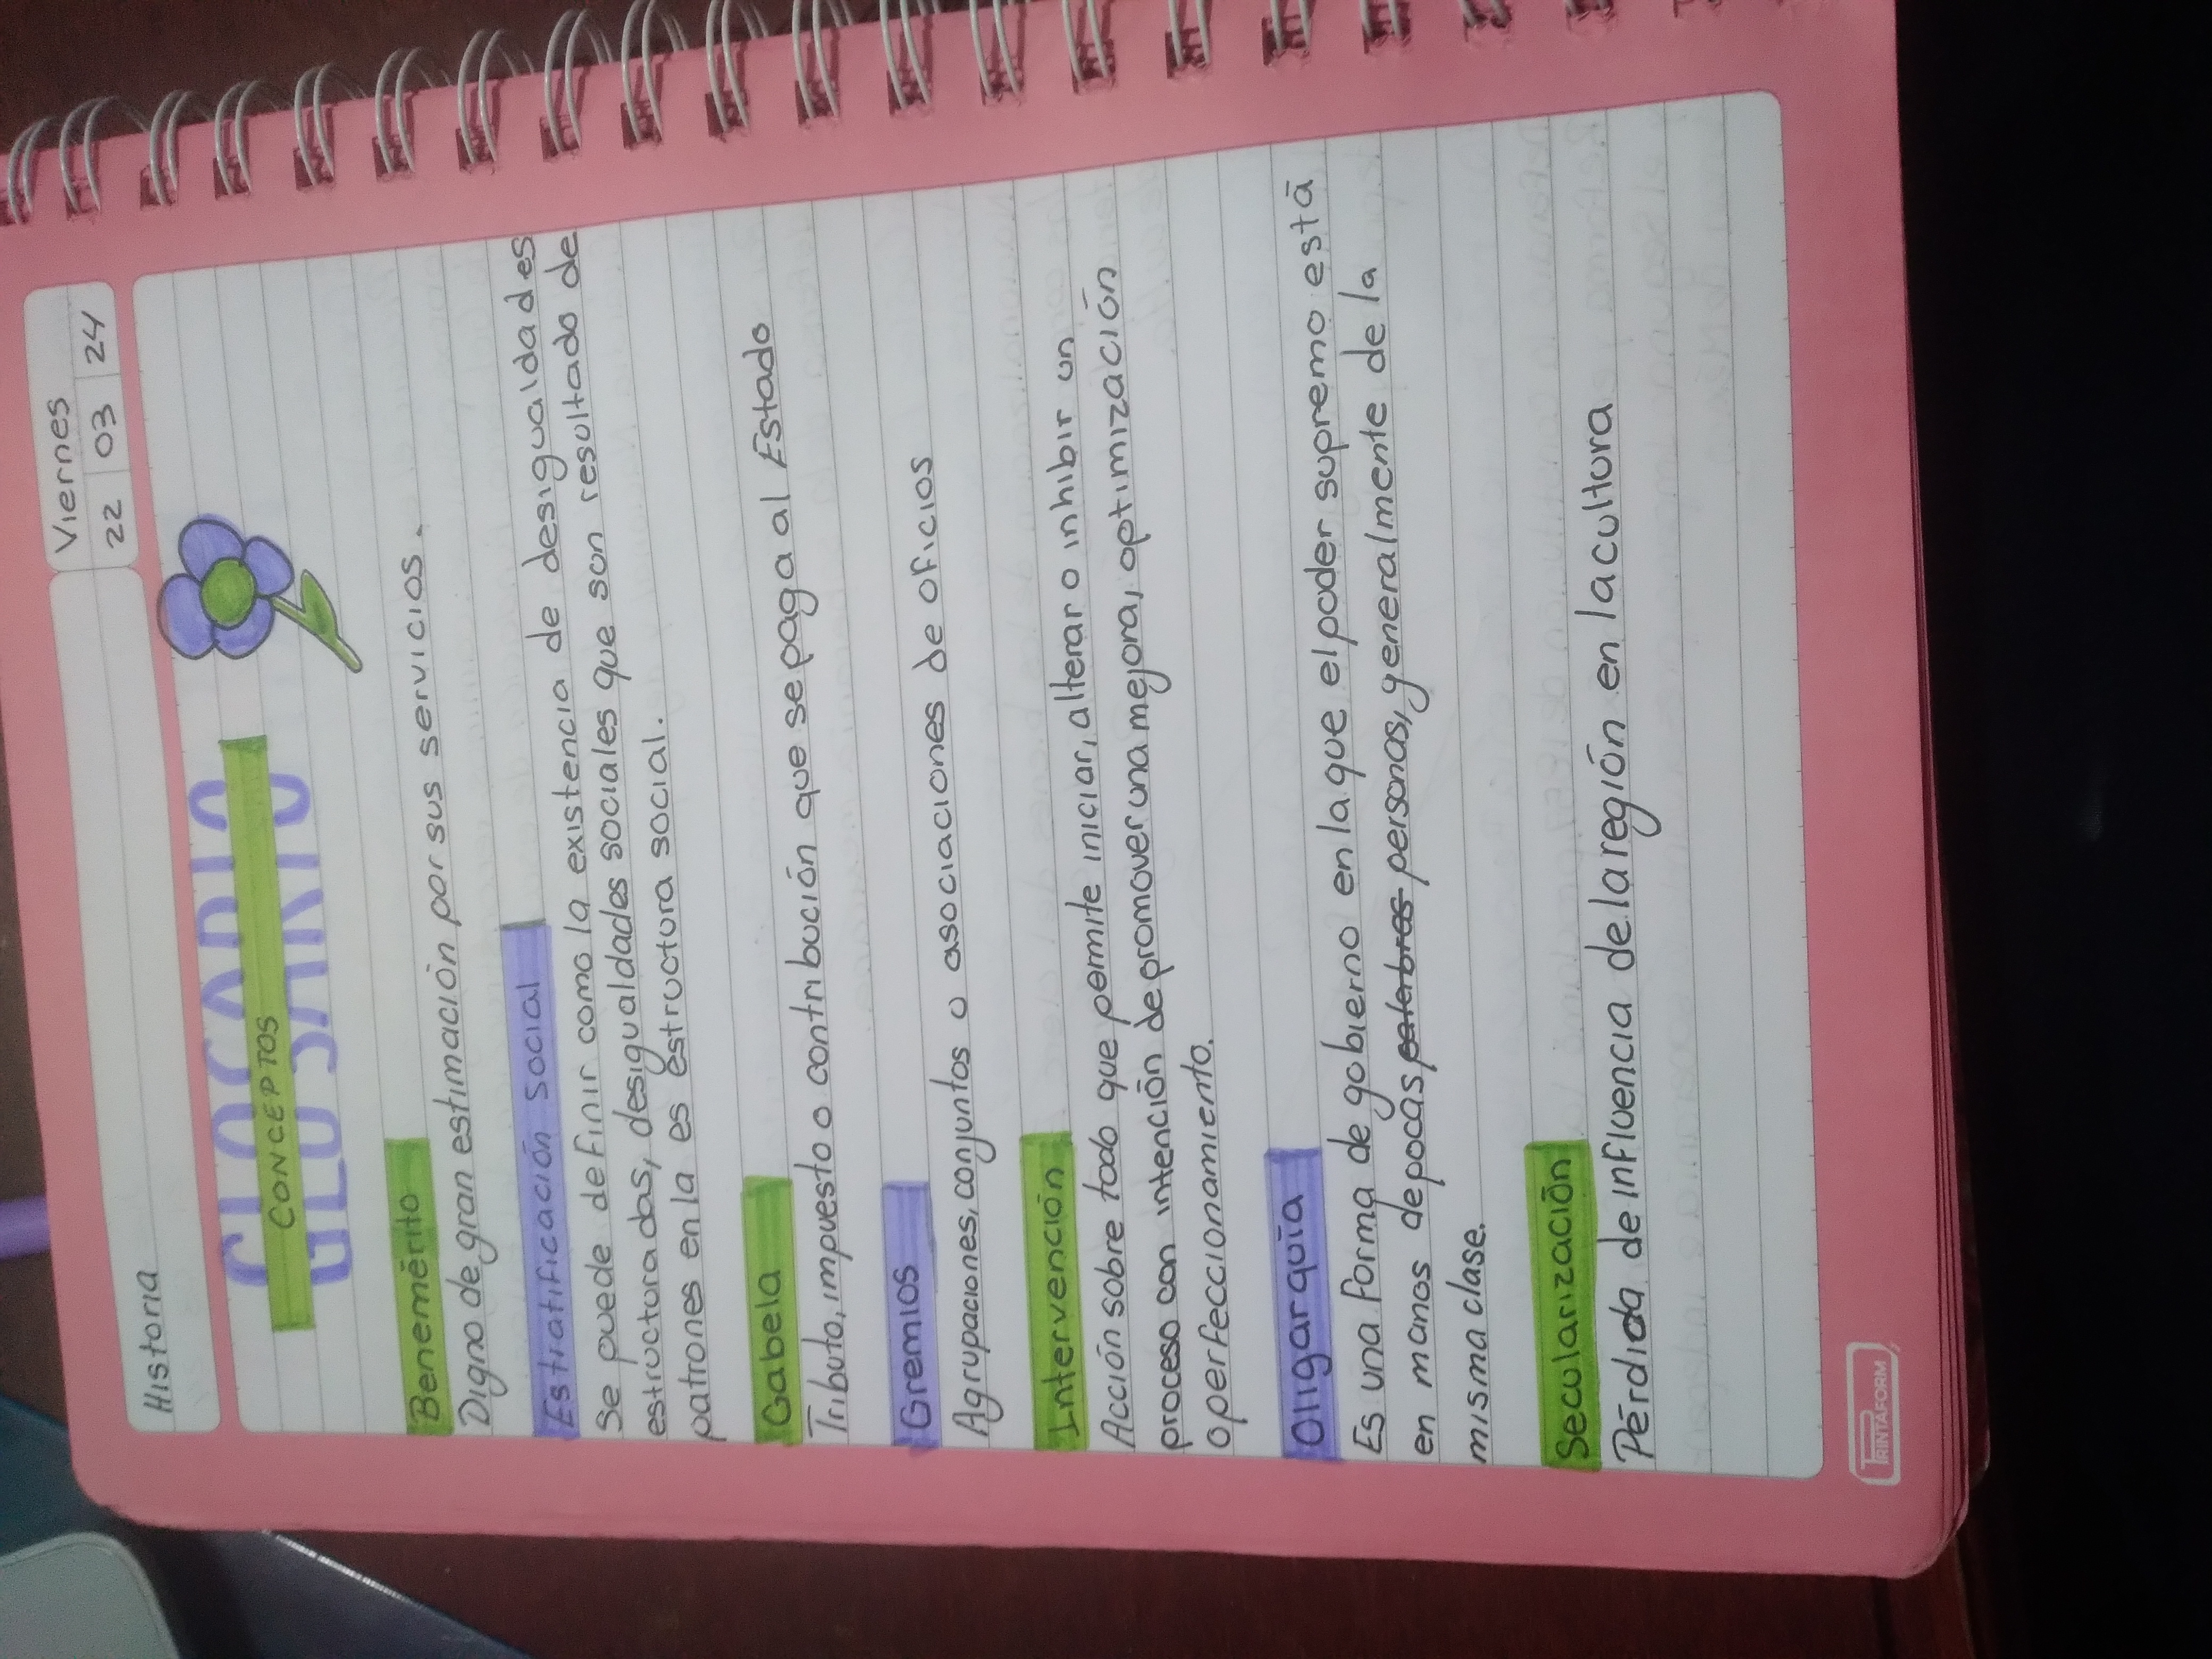 Historia
Viernes
22 03 24
GLOSARIO
CONCEPTOS
Benemérito
Digno de gran estimación por sus servicios.
Estratificación social
Se puede definir como la existencia de desigualdades
estructuradas, desigualdades sociales que son resultado de
patrones en la es estructura social.
Gabela
Tributo, impuesto o contribución que se paga al Estado
Gremios
Agrupaciones, conjuntos u asociaciones de oficios
Intervención
Acción sobre todo que permite iniciar, alterar o inhibir un
proceso con intención de promover una mejora, optimización
o perfeccionamiento.
Oligarquía
Es una forma de gobierno en la que el poder supremo está
en manos de pocas palabras personas, generalmente de la
misma clase.
Secularización
Pérdida de influencia de la región en la cultura
PRINTAFORM